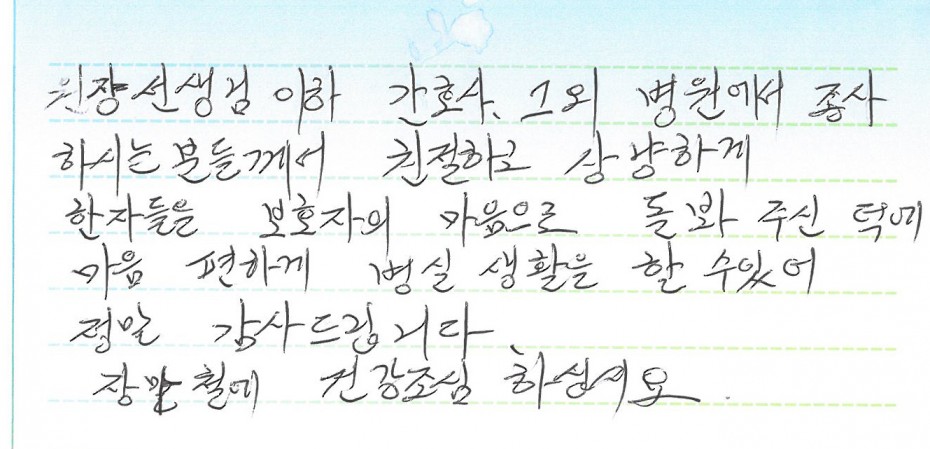 원장선생님 이하 간호사, 그외 병원에서 종사
하시는 분들께서 친절하고 상냥하게
환자들을 보호자의 마음으로 돌봐 주신 덕에
마음 편하게 병실 생활을 할 수있어
정말 감사드립니다.
장마철에 건강조심 하십시요.